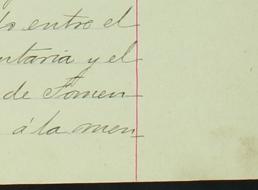 do entre el
ntaria y el
de Fomen
á la men